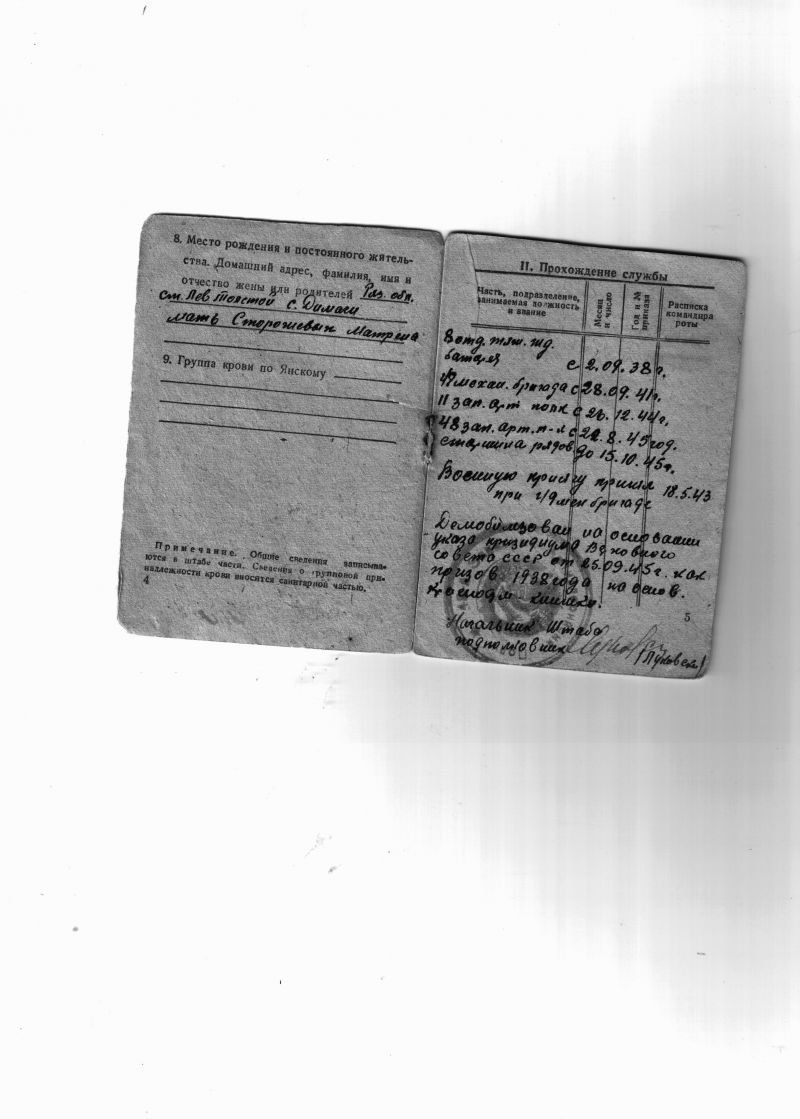 8. Место рождения и постоянного житель-
ства. Домашний адрес, фамилия, имя и
отчество жены или родителей Ряз. обл.
ст. Лев Толстой с. Димачи
мать Сторожевых Матрена
9. Группа крови по Янскому
Примечание. Общие сведения записыва-
ются в штабе части. Сведения о групповой при-
надлежности крови вносятся санитарной частью.
4
II. Прохождение службы
Часть, подразделение, занимаемая должность и звание
Месяц и число
Год и № приказа
Расписка командира роты
отд.
батарея с 2.09.38г.
бригада с 28.09.41г.
11 зап. арт полк с 12.44г.
48 зап. арт. п-к с 22.8.45год.
старшина до 15.10.45г.
Военную принял 18.5.43
при бригаде
Демобилизован на основании
указа призидиума Верховного
совета СССР от 25.09.45г. как
призов. 1938 года на основ.
книжки.
5
Начальник Штаба
подполковник